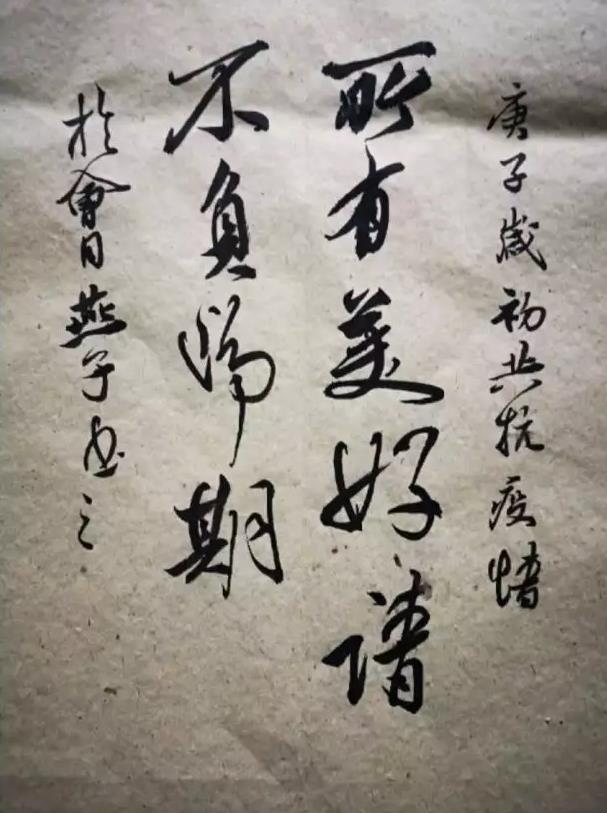 庚子歲初共抗疫情
所有美好請
不負歸期
於會日燕子書之